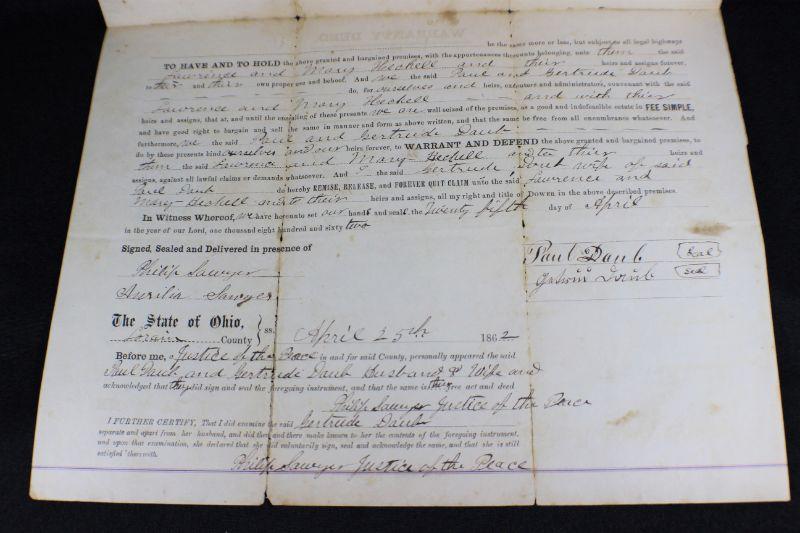 be the same more or less, but subject to all legal highways
TO HAVE AND TO HOLD the above granted and bargained premises, with the appurtenances thereunto belonging, unto them the said
Lawrence and Mary Heckell and their heirs and assigns forever,
to their and their own proper use and behoof. And we the said Paul and Gertrude Daub
do, for ourselves and heirs, executors and administrators, convenant with the said
Lawrence and Mary Heckell and with their
heirs and assigns, that at, and until the ensealing of these presents we are well seized of the premises, as a good and indefeasible estate in FEE SIMPLE,
and have good right to bargain and sell the same in manner and form as above written, and that the same be free from all encumbrances whatsoever. And
furthermore, we the said Paul and Gertrude Daub
do by these presents bind ourselves and our heirs forever, to WARRANT AND DEFEND the above granted and bargained premises, to
them the said Lawrence and Mary Heckell and to their heirs and
assigns, against all lawful claims or demands whatsoever. And the said Gertrude Daub wife of said
Paul Daub do hereby REMISE, RELEASE, and FOREVER QUIT CLAIM unto the said Lawrence and
Mary Heckell and to their heirs and assigns, all my right and title of Dower in the above described premises.
In Witness Whereof, we have hereunto set our hands and seals, the twenty fifth day of April
in the year of our Lord, one thousand eight hundred and sixty two
Signed, Sealed and Delivered in presence of
Philip Sawyer
Aurilia Sawyer
Paul Daub Seal
Daub Seal
The State of Ohio,
Lorain County } ss. April 25th 1862
Before me, a Justice of the Peace in and for said County, personally appeared the said
Paul Daub and Gertrude Daub Husband & Wife and
acknowledged that they did sign and seal the foregoing instrument, and that the same is their free act and deed
Philip Sawyer Justice of the Peace
I FURTHER CERTIFY, That I did examine the said Gertrude Daub
separate and apart from her husband, and did then and there make known to her the contents of the foregoing instrument,
and upon that examination, she declared that she did voluntarily sign, seal and acknowledge the same, and that she is still
satisfied therewith.
Philip Sawyer Justice of the Peace